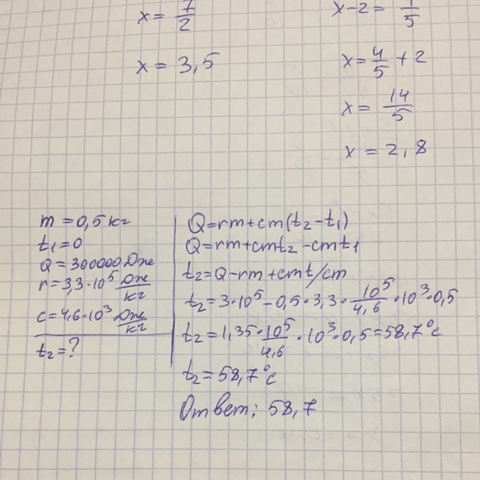 x = 7/2
x = 3,5
x-2 = 4/5
x = 4/5 + 2
x = 14/5
x = 2,8
m = 0,5 кг
t₁ = 0
Q = 300000 Дж
r = 3,3·10⁵ Дж/кг
c = 4,6·10³ Дж/кг
t₂ = ?
Q = rm + cm(t₂ - t₁)
Q = rm + cmt₂ - cmt₁
t₂ = Q - rm + cmt/cm
t₂ = 3·10⁵ - 0,5·3,3·10⁵/4,6·10³·0,5
t₂ = 1,35·10⁵/4,6·10³·0,5 = 58,7°c
t₂ = 58,7°c
Ответ: 58,7